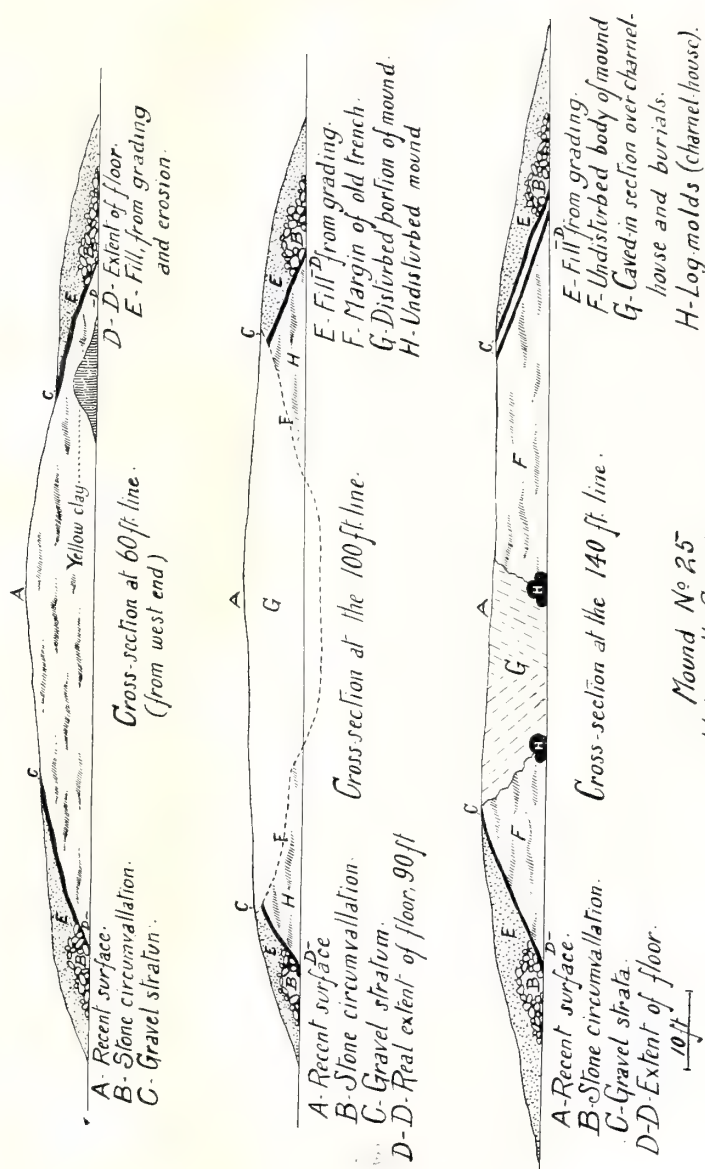 A
C
C
E
E
B
B
D-
-D
Yellow clay
A- Recent surface.
B- Stone circumvallation.
C- Gravel stratum.
Cross-section at 60 ft. line.
(from west end)
D- D- Extent of floor.
E- Fill, from grading
and erosion.
A
C
C
E
E
B
B
G
F
F
H
H
D-
-D
A- Recent surface
B- Stone circumvallation.
C- Gravel stratum.
D-D- Real extent of floor, 90 ft
Cross-section at the 100 ft. line.
E- Fill from grading.
F- Margin of old trench.
G- Disturbed portion of mound.
H- Undisturbed mound
A
C
C
E
E
B
B
G
F
F
H
H
D-
-D
A-Recent surface.
B-Stone circumvallation.
C-Gravel strata.
D-D-Extent of floor.
10 ft
Cross-section at the 140 ft. line.
E-Fill from grading.
F-Undisturbed body of mound
G-Caved-in section over charnel-
house and burials.
H-Log-molds (charnel-house).
Mound No 25